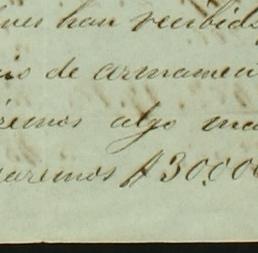 han recibid
de armamen
remos algo ma
aremos $30.00